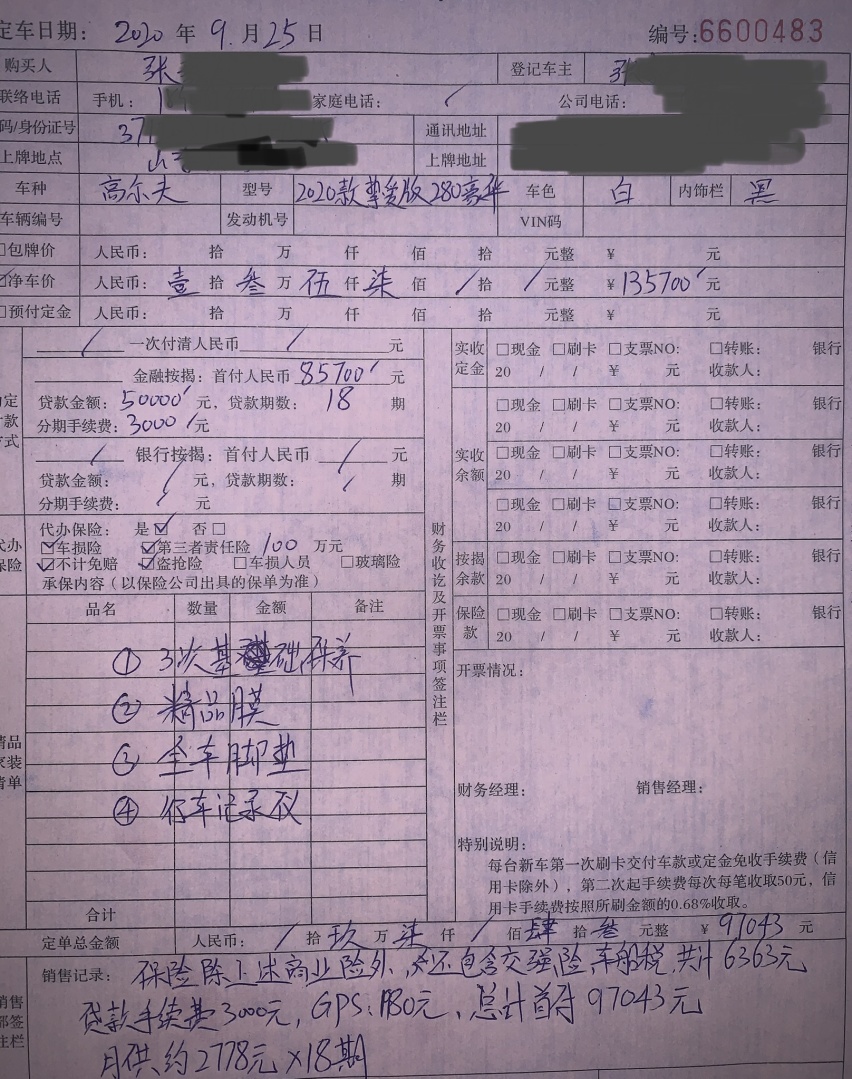 定车日期： 2020 年 9 月 25 日 编号:6600483
购买人 张 登记车主 张
联络电话 手机： 家庭电话： / 公司电话：
码/身份证号 37 通讯地址
上牌地点 上牌地址
车种 高尔夫 型号 2020款 版280豪华 车色 白 内饰栏 黑
车辆编号 发动机号 VIN码
□包牌价 人民币： 拾 万 仟 佰 拾 元整 ¥ 元
☑净车价 人民币： 壹 拾 叁 万 伍 仟 柒 佰 / 拾 / 元整 ¥ 135700 元
□预付定金 人民币： 拾 万 仟 佰 拾 元整 ¥ 元
/ 一次付清人民币 / 元
金融按揭：首付人民币 85700 元
贷款金额：50000 元，贷款期数： 18 期
分期手续费：3000 元
/ 银行按揭：首付人民币 / 元
贷款金额： / 元，贷款期数： / 期
分期手续费： / 元
代办保险： 是☑ 否□
☑车损险 ☑第三者责任险 100 万元
☑不计免赔 ☑盗抢险 □车损人员 □玻璃险
承保内容（以保险公司出具的保单为准）
品名 数量 金额 备注
① 3次基础保养
② 精品膜
③ 全车脚垫
④ 行车记录仪
合计
财务收讫及开票事项签注栏
实收定金 □现金 □刷卡 □支票NO: □转账： 银行
20 / / ¥ 元 收款人：
实收余额 □现金 □刷卡 □支票NO: □转账： 银行
20 / / ¥ 元 收款人：
□现金 □刷卡 □支票NO: □转账： 银行
20 / / ¥ 元 收款人：
□现金 □刷卡 □支票NO: □转账： 银行
20 / / ¥ 元 收款人：
按揭余款 □现金 □刷卡 □支票NO: □转账： 银行
20 / / ¥ 元 收款人：
保险款 □现金 □刷卡 □支票NO: □转账： 银行
20 / / ¥ 元 收款人：
开票情况：
财务经理： 销售经理：
特别说明：
每台新车第一次刷卡交付车款或定金免收手续费（信
用卡除外），第二次起手续费每次每笔收取50元，信
用卡手续费按照所刷金额的0.68%收取。
定单总金额 人民币： / 拾 玖 万 柒 仟 / 佰 肆 拾 叁 元整 ¥ 97043 元
销售记录： 保险除上述商业险外，还包含交强险，车船税，共计6363元
贷款手续费3000元，GPS：1980元，总计首付97043元
月供约2778元×18期